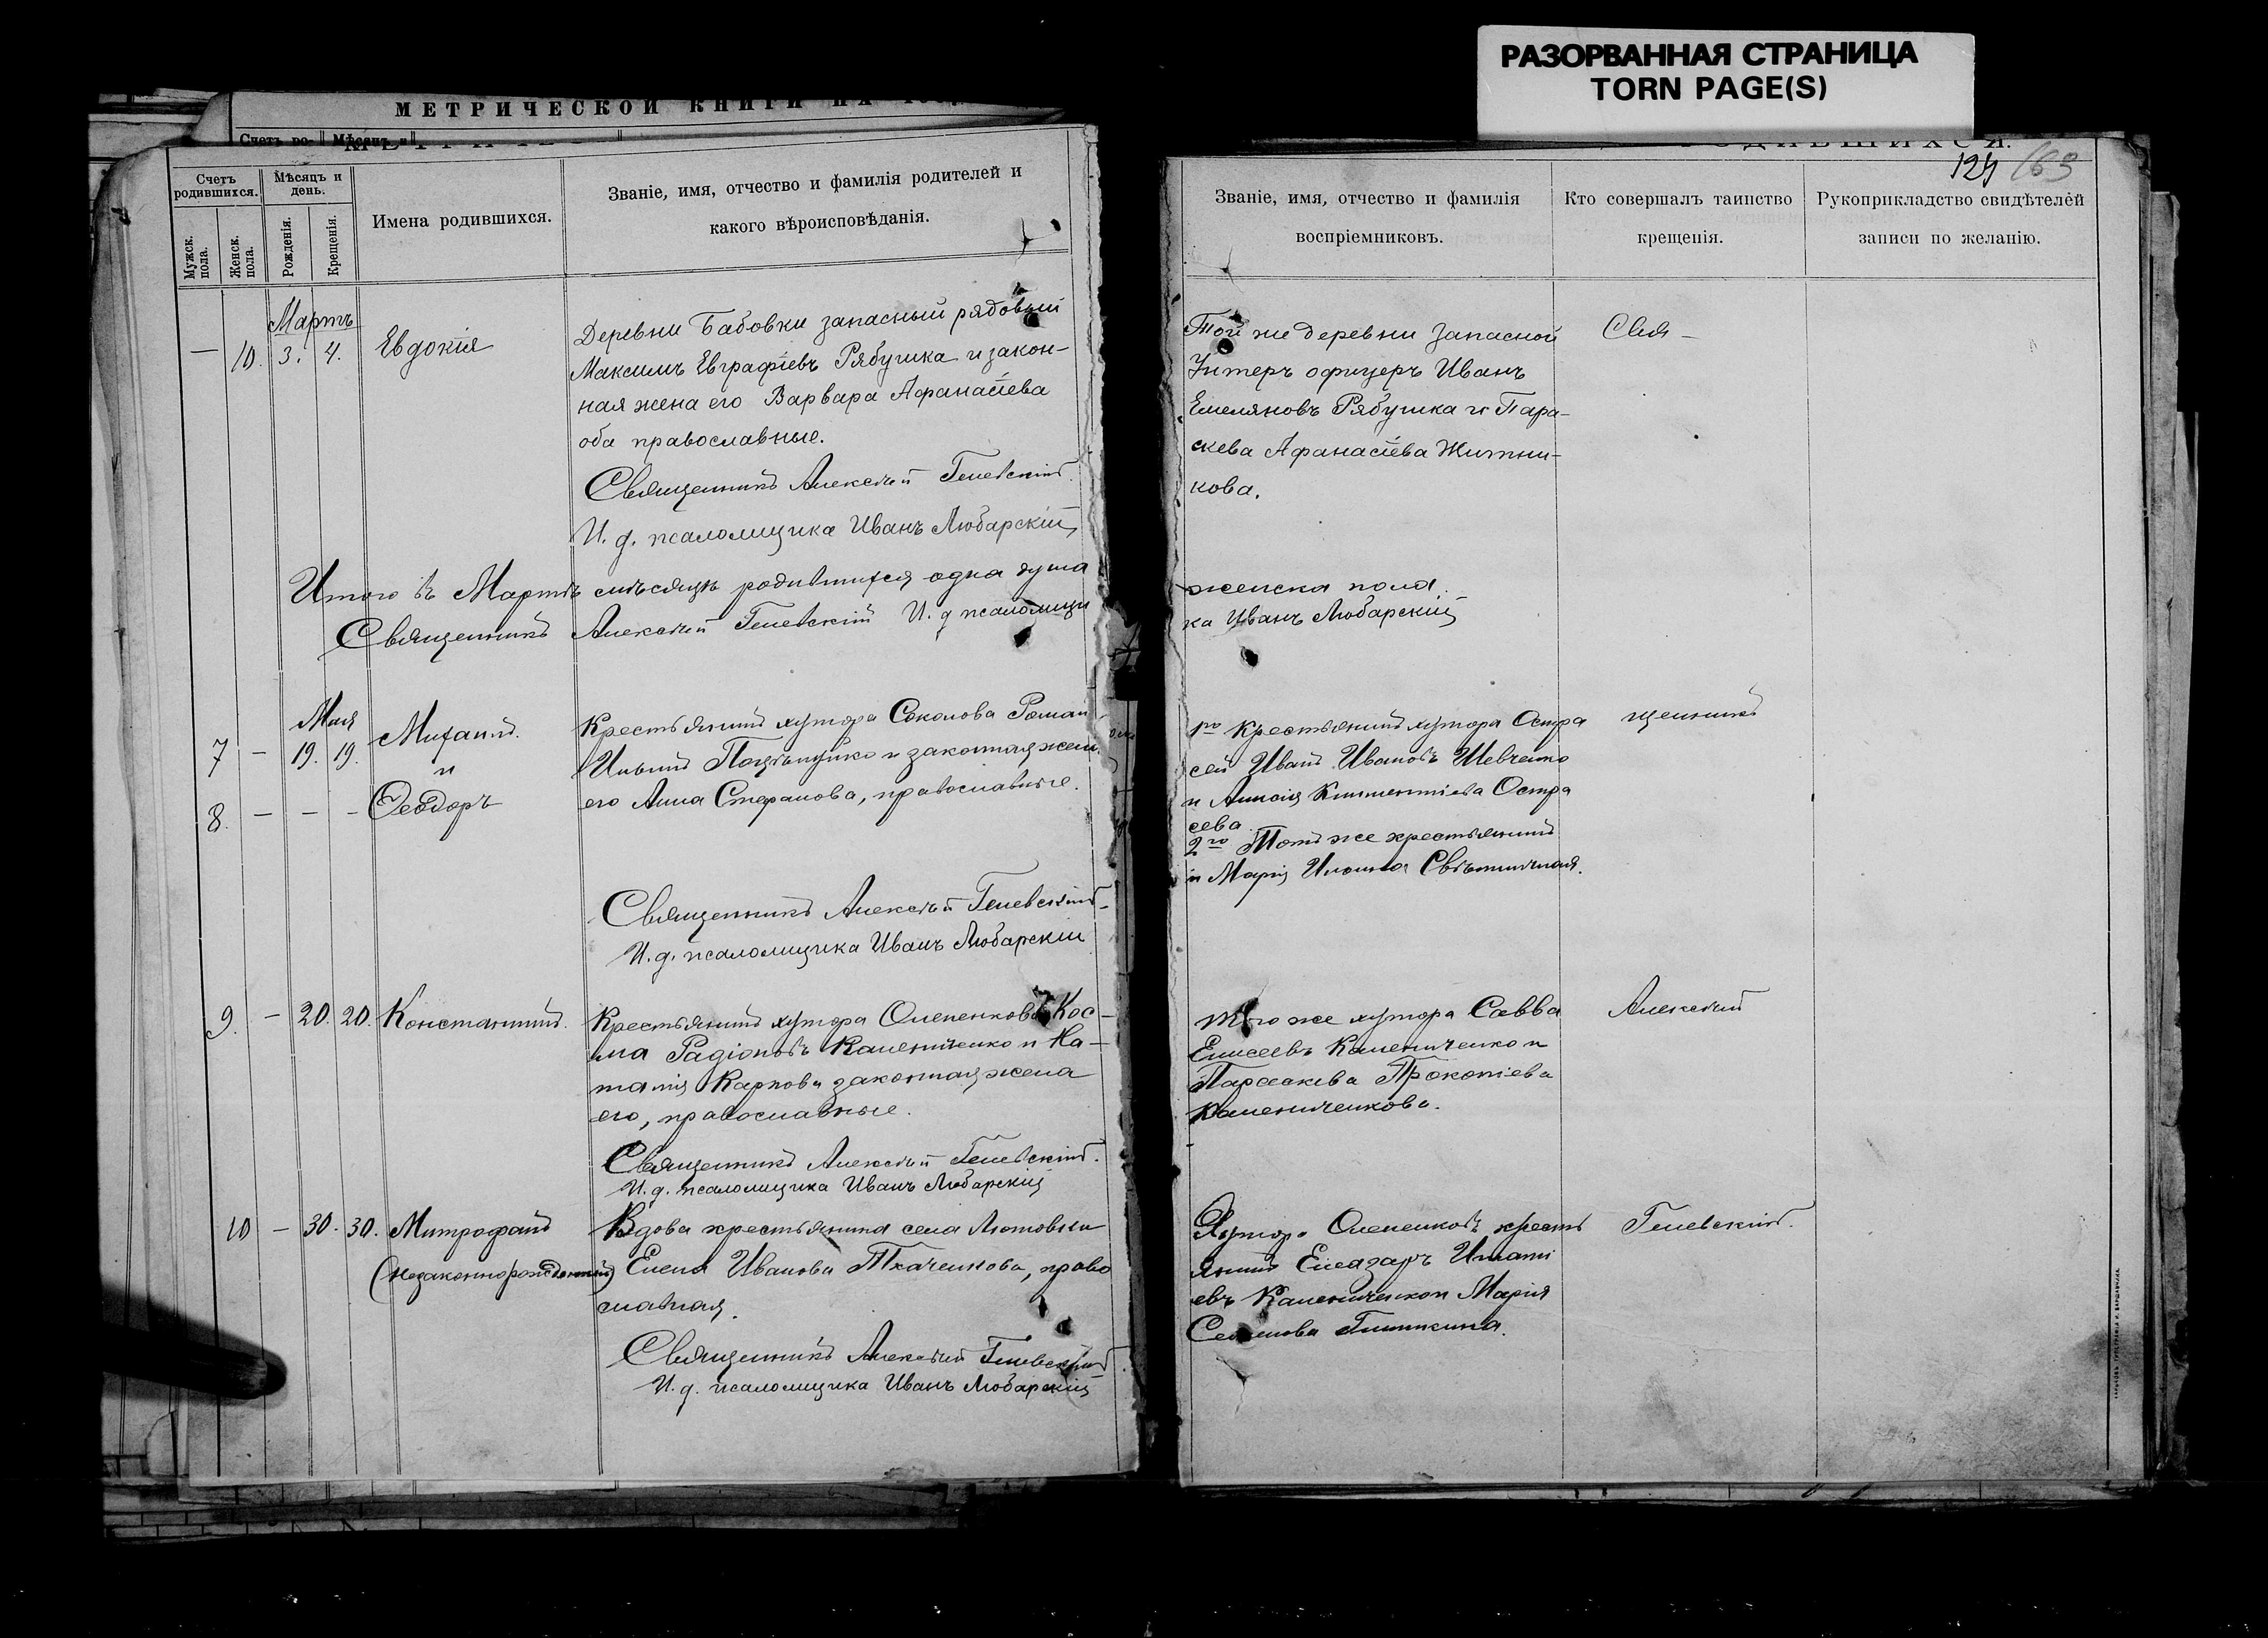 РАЗОРВАННАЯ СТРАНИЦА
TORN PAGE(S)
МЕТРИЧЕСКОЙ КНИГИ НА
Счетъ ро- Мѣсяцъ и
124 169
Счетъ родившихся.
Мѣсяцъ и день.
Мужск. пола.
Женск. пола.
Рожденія.
Крещенія.
Имена родившихся.
Званіе, имя, отчество и фамилія родителей и
какого вѣроисповѣданія.
Мартъ
— 10. 3. 4. Евдокія
Деревни Бабовки запасный рядовый
Максимъ Евграфіевъ Рябушка и закон-
ная жена его Варвара Афанасіева
оба православные.
Священникъ Алексѣй
И. д. псаломщика Иванъ Любарскій
Итого въ Мартѣ мѣсяцѣ родившихся одна душа
Священникъ Алексѣй И. д псаломщи
Мая
7 — 19. 19. Михаилъ
и
8. — — — Ѳеодоръ
Крестьянинъ хутора Соколова Роман
и законная жена
его Анна Стефанова, православные.
Священникъ Алексѣй
И. д. псаломщика Иванъ Любарскій
9. — 20. 20. Константинъ.
Крестьянинъ хутора Олепенковъ Кос-
ма Радіоновъ Каленниченко и На-
талія Карпова законная жена
его, православные.
Священникъ Алексѣй
И. д. псаломщика Иванъ Любарскій
10 — 30. 30. Митрофанъ
(незаконнорожденный)
Вдова крестьянина села Лютовки
Елена Иванова Ткаченкова, право
славная.
Священникъ Алексѣй
И. д. псаломщика Иванъ Любарскій
Званіе, имя, отчество и фамилія
воспріемниковъ.
Кто совершалъ таинство
крещенія.
Рукоприкладство свидѣтелей
записи по желанію.
Той же деревни запасной
Унтеръ офицеръ Иванъ
Емеляновъ Рябушка и Пара-
скева Афанасіева Житни-
кова.
женска пола.
ка Иванъ Любарскій
1го Крестьянинъ хутора
Иванъ Ивановъ Шевченко
и
2го Тотъ же крестьянинъ
и Марія
того же хутора Савва
Елисеевъ Каленниченко и
Параскева Прокопіева
Каленниченкова.
Хутора Олепенковъ кресть
янинъ Елеазаръ Игнаті
евъ Каленниченко и Марія
Свя-
щенникъ
Алексѣй